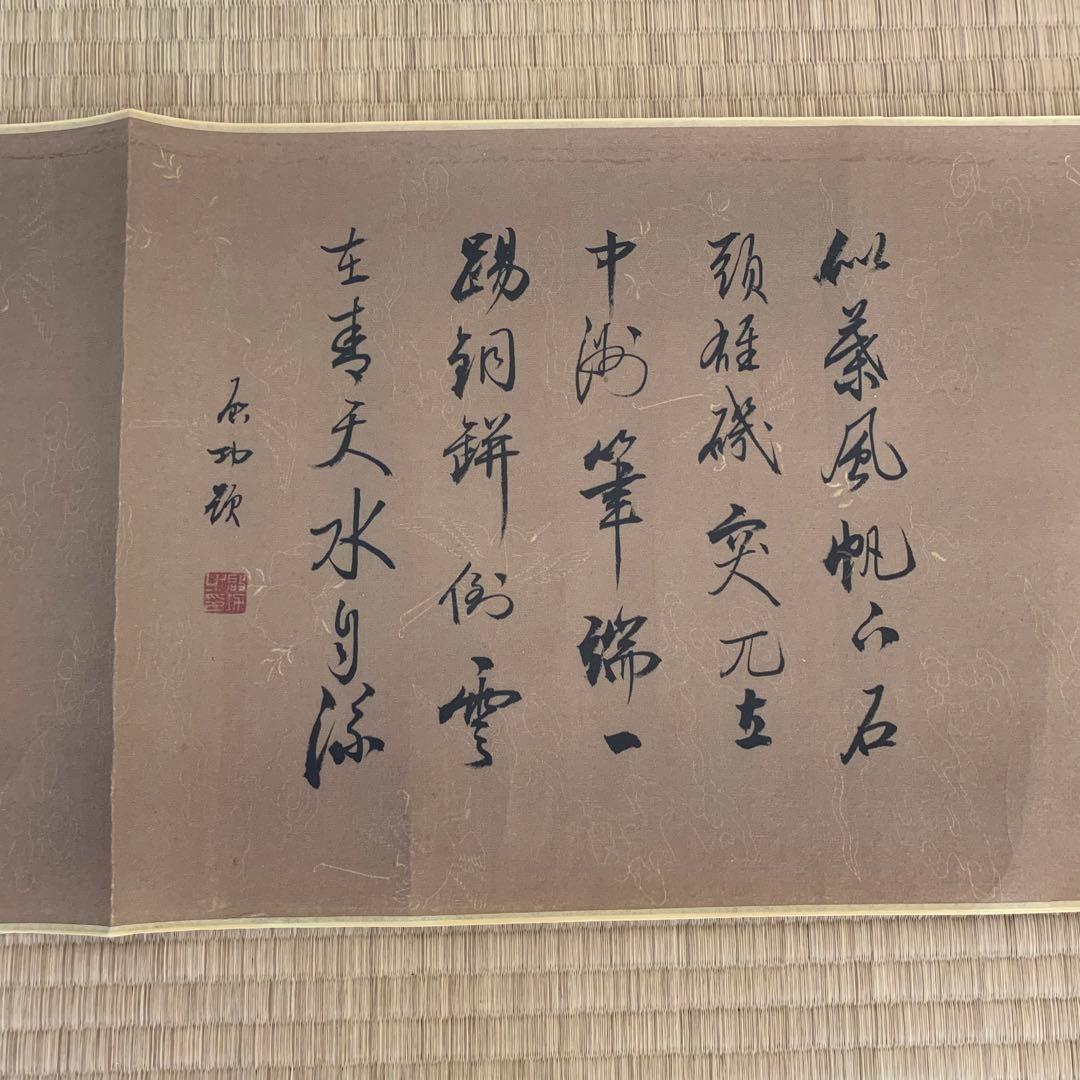 似葉風帆下石
頭雄磯突兀立
中洲筆端一
踢銅缾倒雲
在青天水自流
启功題